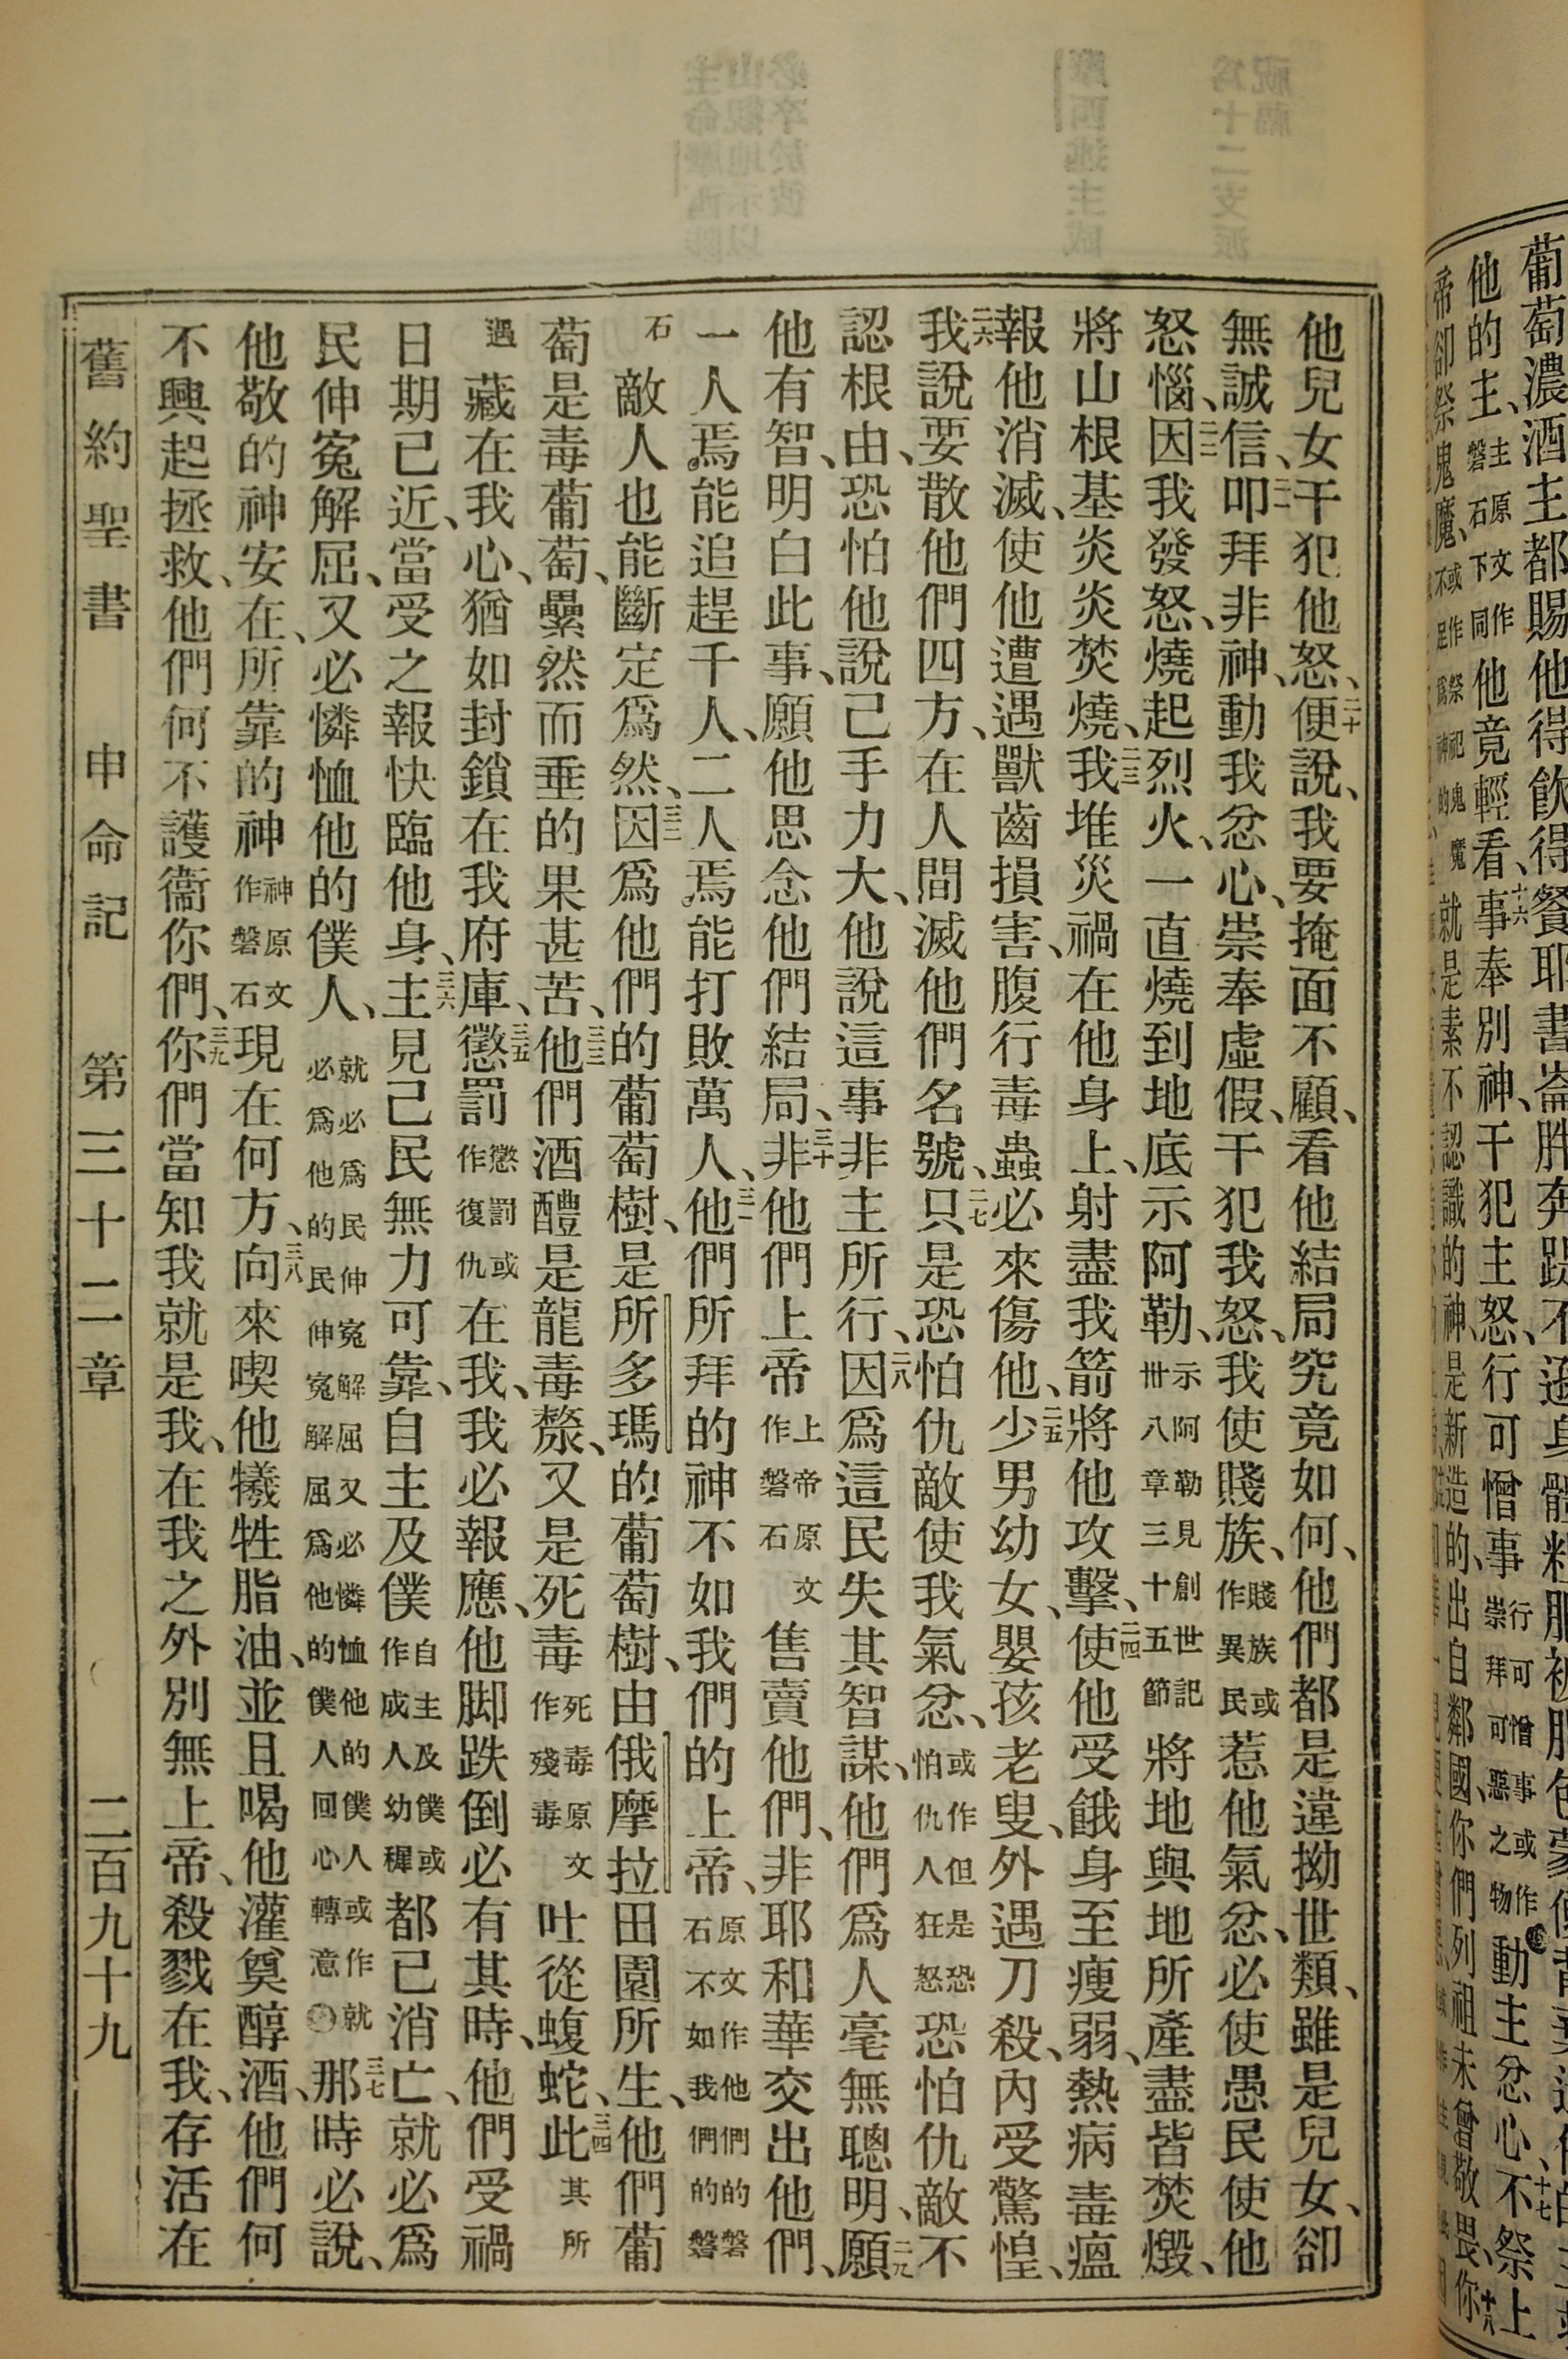 葡萄濃酒主都賜他得飲得餐耶書崙胖奔踶不
他的主、主原文作磐石下同他竟輕看、十六事奉別神、干犯主怒、行可憎事行可憎事或作崇拜可惡之物動主忿心、十七不祭上
帝卻祭鬼魔、或作祭祀鬼魔不足爲神的就是素不認識的神、是新造的、出自鄰國、你們列祖未曾敬畏、十八你
他兒女干犯他怒、二十便說、我要掩面不顧、看他結局究竟如何、他們都是違拗世類、雖是兒女、卻
無誠信、二一叩拜非神、動我忿心、崇奉虛假、干犯我怒、我使賤族、賤族或作異民惹他氣忿、必使愚民使他
怒惱、二二因我發怒、燒起烈火、一直燒到地底示阿勒、示阿勒見創世記卅八章三十五節將地與地所產盡皆焚燬、
將山根基炎炎焚燒、二三我堆災禍在他身上、射盡我箭將他攻擊、二四使他受餓身至瘦弱、熱病毒瘟
報他消滅、使他遭遇獸齒損害、腹行毒蟲必來傷他、二五少男幼女、嬰孩老叟、外遇刀殺、內受驚惶、
二六我說要散他們四方、在人間滅他們名號、二七只是恐怕仇敵使我氣忿、或作但是恐怕仇人狂怒恐怕仇敵不
認根由、恐怕他說己手力大、他說這事非主所行、二八因爲這民失其智謀、他們爲人毫無聰明、二九願
他有智、明白此事、願他思念他們結局、三十非他們上帝上帝原文作磐石售賣他們、非耶和華交出他們、
一人焉能追趕千人、二人焉能打敗萬人、三一他們所拜的神不如我們的上帝、原文作他們的磐石不如我們的磐
石敵人也能斷定爲然、三二因爲他們的葡萄樹、是所多瑪的葡萄樹、由俄摩拉田園所生、他們葡
萄是毒葡萄、纍然而垂的果甚苦、三三他們酒醴是龍毒漦、又是死毒死毒原文作殘毒吐從蝮蛇、三四此其所
遇藏在我心、猶如封鎖在我府庫、三五懲罰懲罰或作復仇在我、我必報應、他脚跌倒必有其時、他們受禍
日期已近、當受之報快臨他身、三六主見己民無力可靠、自主及僕自主及僕或作成人幼穉都已消亡、就必爲
民伸寃解屈、又必憐恤他的僕人、就必爲民伸寃解屈又必憐恤他的僕人或作就必爲他的民伸寃解屈爲他的僕人回心轉意三七那時必說、
他敬的神安在、所靠的神神原文作磐石現在何方、三八向來喫他犧牲脂油、並且喝他灌奠醇酒、他們何
不興起拯救、他們何不護衞你們、三九你們當知我就是我、在我之外別無上帝、殺戮在我、存活在
舊約聖書　申命記　第三十二章　二百九十九